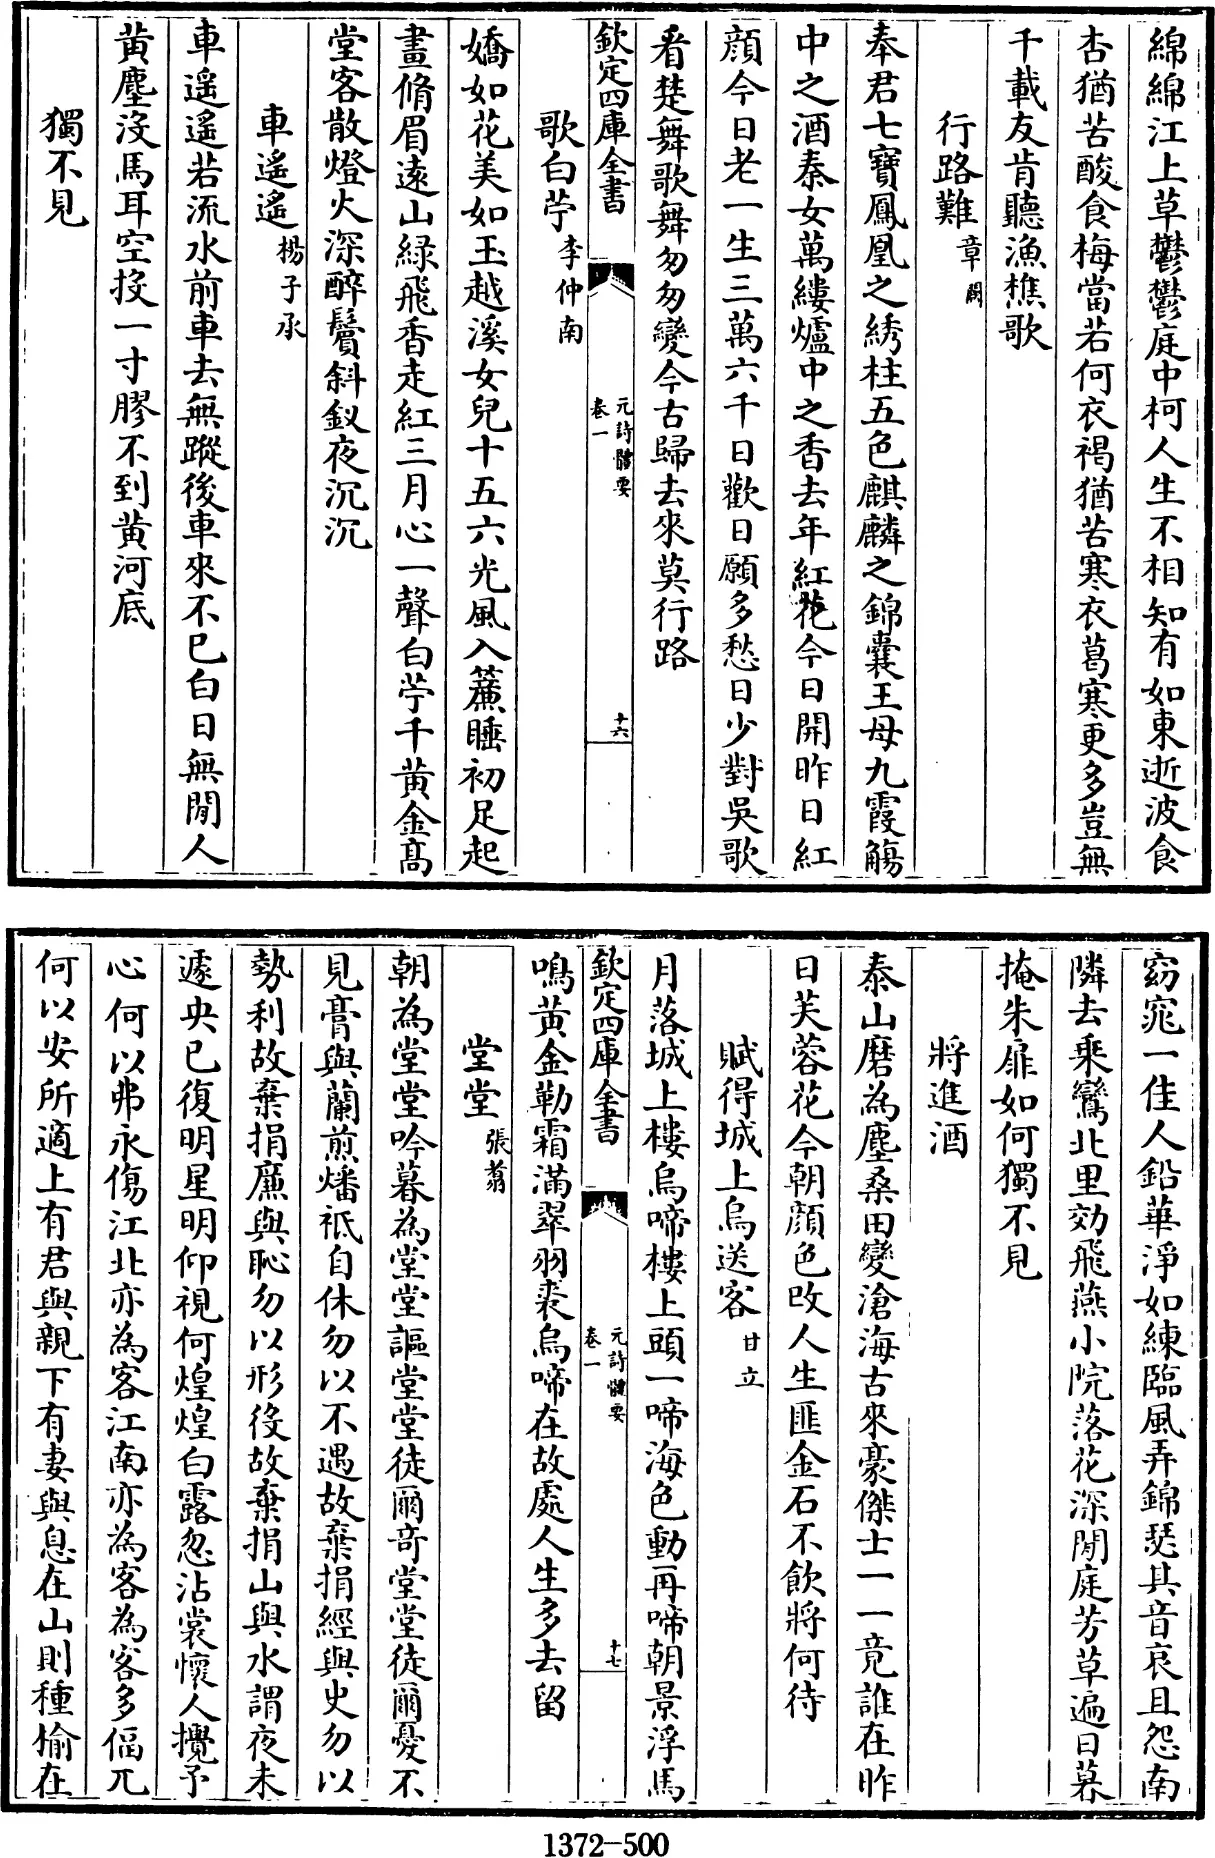 綿綿江上草鬱鬱庭中柯人生不相知有如東逝波食
杏猶苦酸食梅當若何衣褐猶苦寒衣葛寒更多豈無
千載友肯聽漁樵歌
行路難 章闕
奉君七寶鳳凰之綉柱五色麒麟之錦囊王母九霞觴
中之酒秦女萬縷爐中之香去年紅花今日開昨日紅
顔今日老一生三萬六千日歡日願多愁日少對吳歌
看楚舞歌舞匆匆變今古歸去來莫行路
欽定四庫全書
元詩體要
卷一
十六
歌白苧 李仲南
嬌如花美如玉越溪女兒十五六光風入簾睡初足起
畫脩眉遠山綠飛香走紅三月心一聲白苧千黃金高
堂客散燈火深醉鬟斜釵夜沉沉
車遥遥 楊子承
車遥遥若流水前車去無蹤後車來不已白日無閒人
黃塵沒馬耳空投一寸膠不到黃河底
獨不見
窈窕一佳人鉛華淨如練臨風弄錦瑟其音哀且怨南
隣去乗鸞北里効飛燕小院落花深閒庭芳草遍日暮
掩朱扉如何獨不見
將進酒
泰山磨為塵桑田變滄海古來豪傑士一一竟誰在昨
日芙蓉花今朝顔色改人生匪金石不飲將何待
賦得城上烏送客 甘立
月落城上樓烏啼樓上頭一啼海色動再啼朝景浮馬
欽定四庫全書
元詩體要
卷一
十七
鳴黃金勒霜滿翠羽裘烏啼在故處人生多去留
堂堂 張翥
朝為堂堂吟暮為堂堂謳堂堂徒爾奇堂堂徒爾憂不
見膏與蘭煎燔祗自休勿以不遇故棄捐經與史勿以
勢利故棄捐廉與恥勿以形役故棄捐山與水謂夜未
遽央已復明星明仰視何煌煌白露忽沾裳懷人攪予
心何以弗永傷江北亦為客江南亦為客為客多偪兀
何以安所適上有君與親下有妻與息在山則種榆在
1372-500